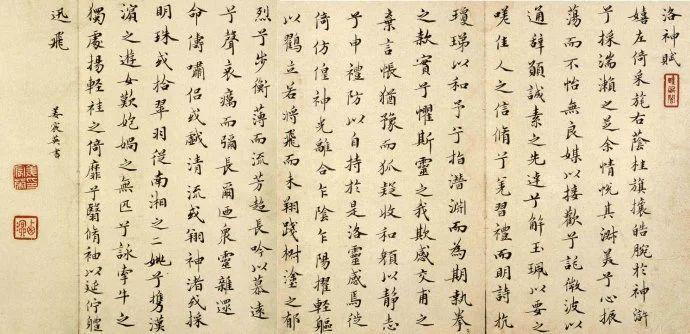 洛神賦
嬉左倚采旄右蔭桂旗攘皓腕於神滸
兮採湍瀨之芝余情悅其淑美兮心振
蕩而不怡無良媒以接歡兮託微波以
通辭願誠素之先達兮解玉珮以要之
嗟佳人之信脩兮羌習禮而明詩抗
瓊珶以和予兮指潛淵而為期執眷
之款實兮懼斯靈之我欺感交甫之
棄言悵猶豫而狐疑收和顏以靜志
兮申禮防以自持於是洛靈感焉徙
倚仿偟神光離合乍陰乍陽擢輕軀
以鶴立若將飛而未翔踐椒塗之郁
烈兮步衡薄而流芳超長吟以慕遠
兮聲哀厲而彌長爾迺衆靈雜遝
命儔嘯侶或戲清流或翔神渚或採
明珠或拾翠羽從南湘之二姚兮攜漢
濱之遊女歎匏媧之無匹兮詠牽牛之
獨處揚輕袿之倚靡兮翳脩袖以延佇體
迅飛
姜宸英書